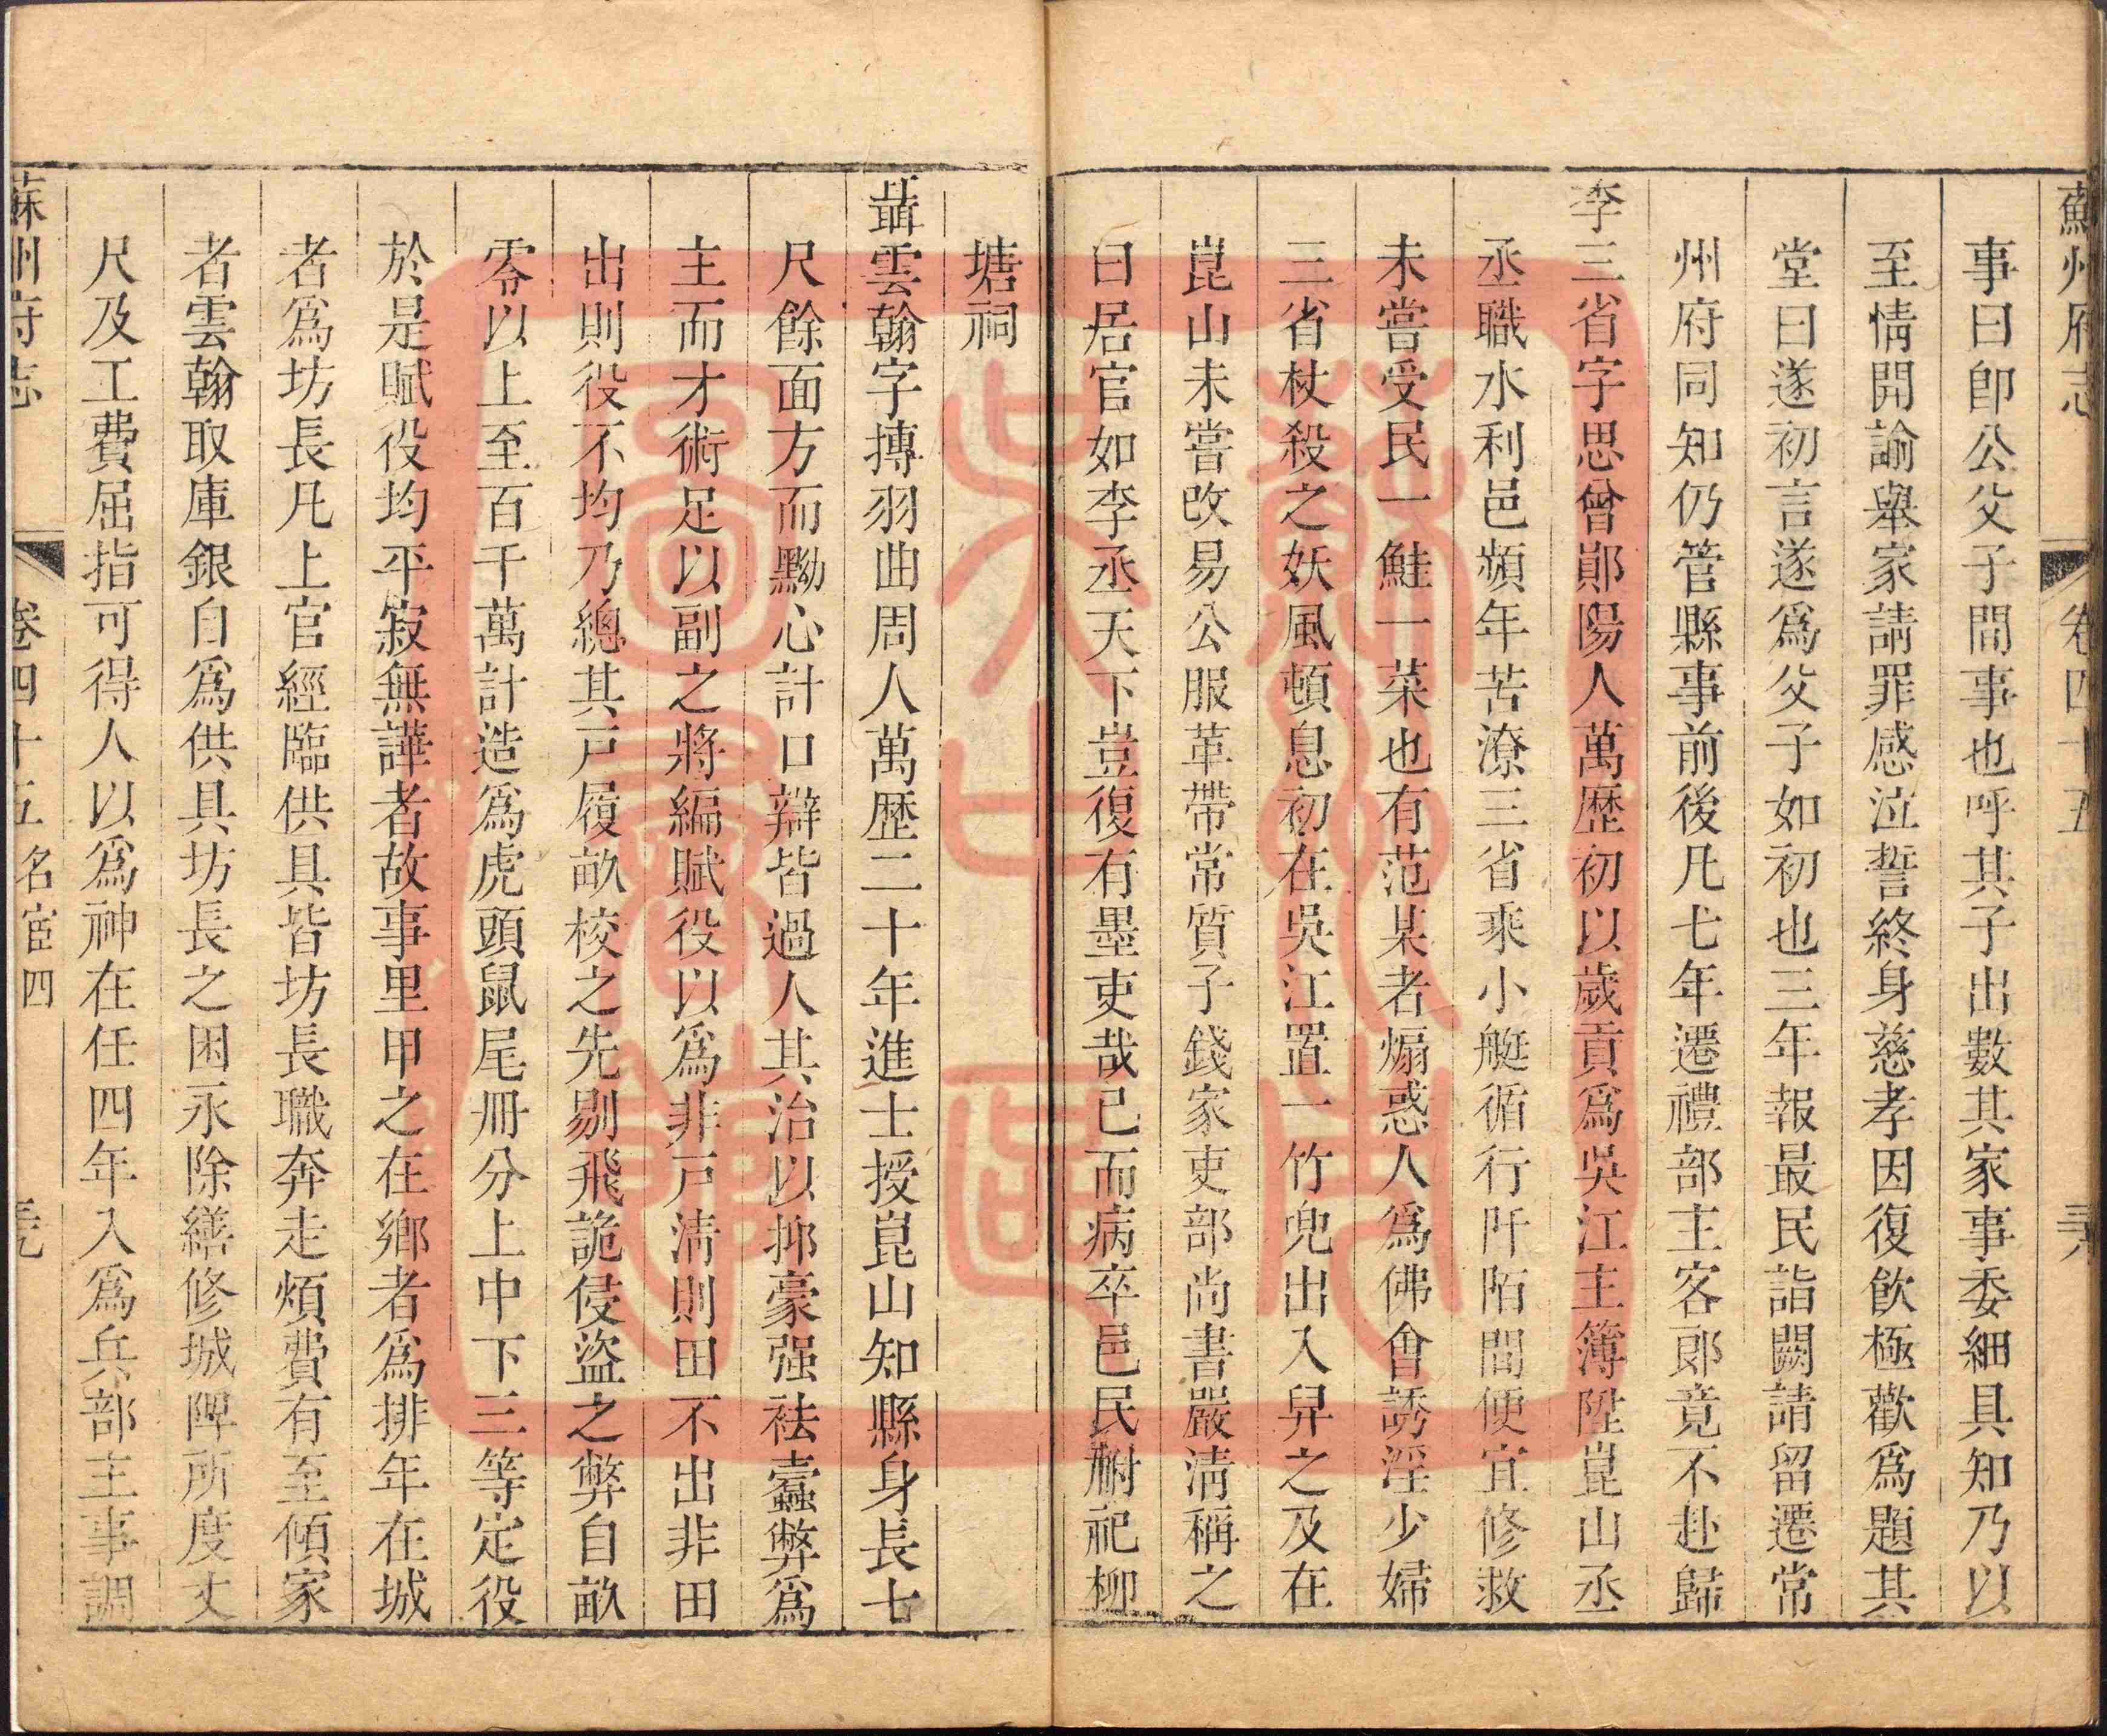 蘇州府志 卷四十五 三八
事曰卽公父子間事也呼其子出數其家事委細具知乃以
至情開諭舉家請罪感泣誓終身慈孝因復飮極歡爲題其
堂曰遂初言遂爲父子如初也三年報最民詣闕請留遷常
州府同知仍管縣事前後凡七年遷禮部主客郎竟不赴歸
李三省字思曾鄖陽人萬歷初以歲貢爲吳江主簿陞崑山丞
丞職水利邑頻年苦潦三省乘小艇循行阡陌間便宜修救
未嘗受民一鮭一菜也有范某者煽惑人爲佛會誘淫少婦
三省杖殺之妖風頓息初在吳江置一竹兜出入舁之及在
崑山未嘗改易公服革帶常質子錢家吏部尚書嚴淸稱之
曰居官如李丞天下豈復有墨吏哉已而病卒邑民祔祀柳
塘祠
聶雲翰字摶羽曲周人萬歷二十年進士授崑山知縣身長七
尺餘面方而黝心計口辯皆過人其治以抑豪强祛蠹弊爲
主而才術足以副之將編賦役以爲非戸淸則田不出非田
出則役不均乃總其戸履畝校之先剔飛詭侵盜之弊自畝
零以上至百千萬計造爲虎頭鼠尾冊分上中下三等定役
於是賦役均平寂無譁者故事里甲之在鄉者爲排年在城
者爲坊長凡上官經臨供具皆坊長職奔走煩費有至傾家
者雲翰取庫銀自爲供具坊長之困永除繕修城陴所度丈
尺及工費屈指可得人以爲神在任四年入爲兵部主事調
蘇州府志 卷四十五 名宦四 三九